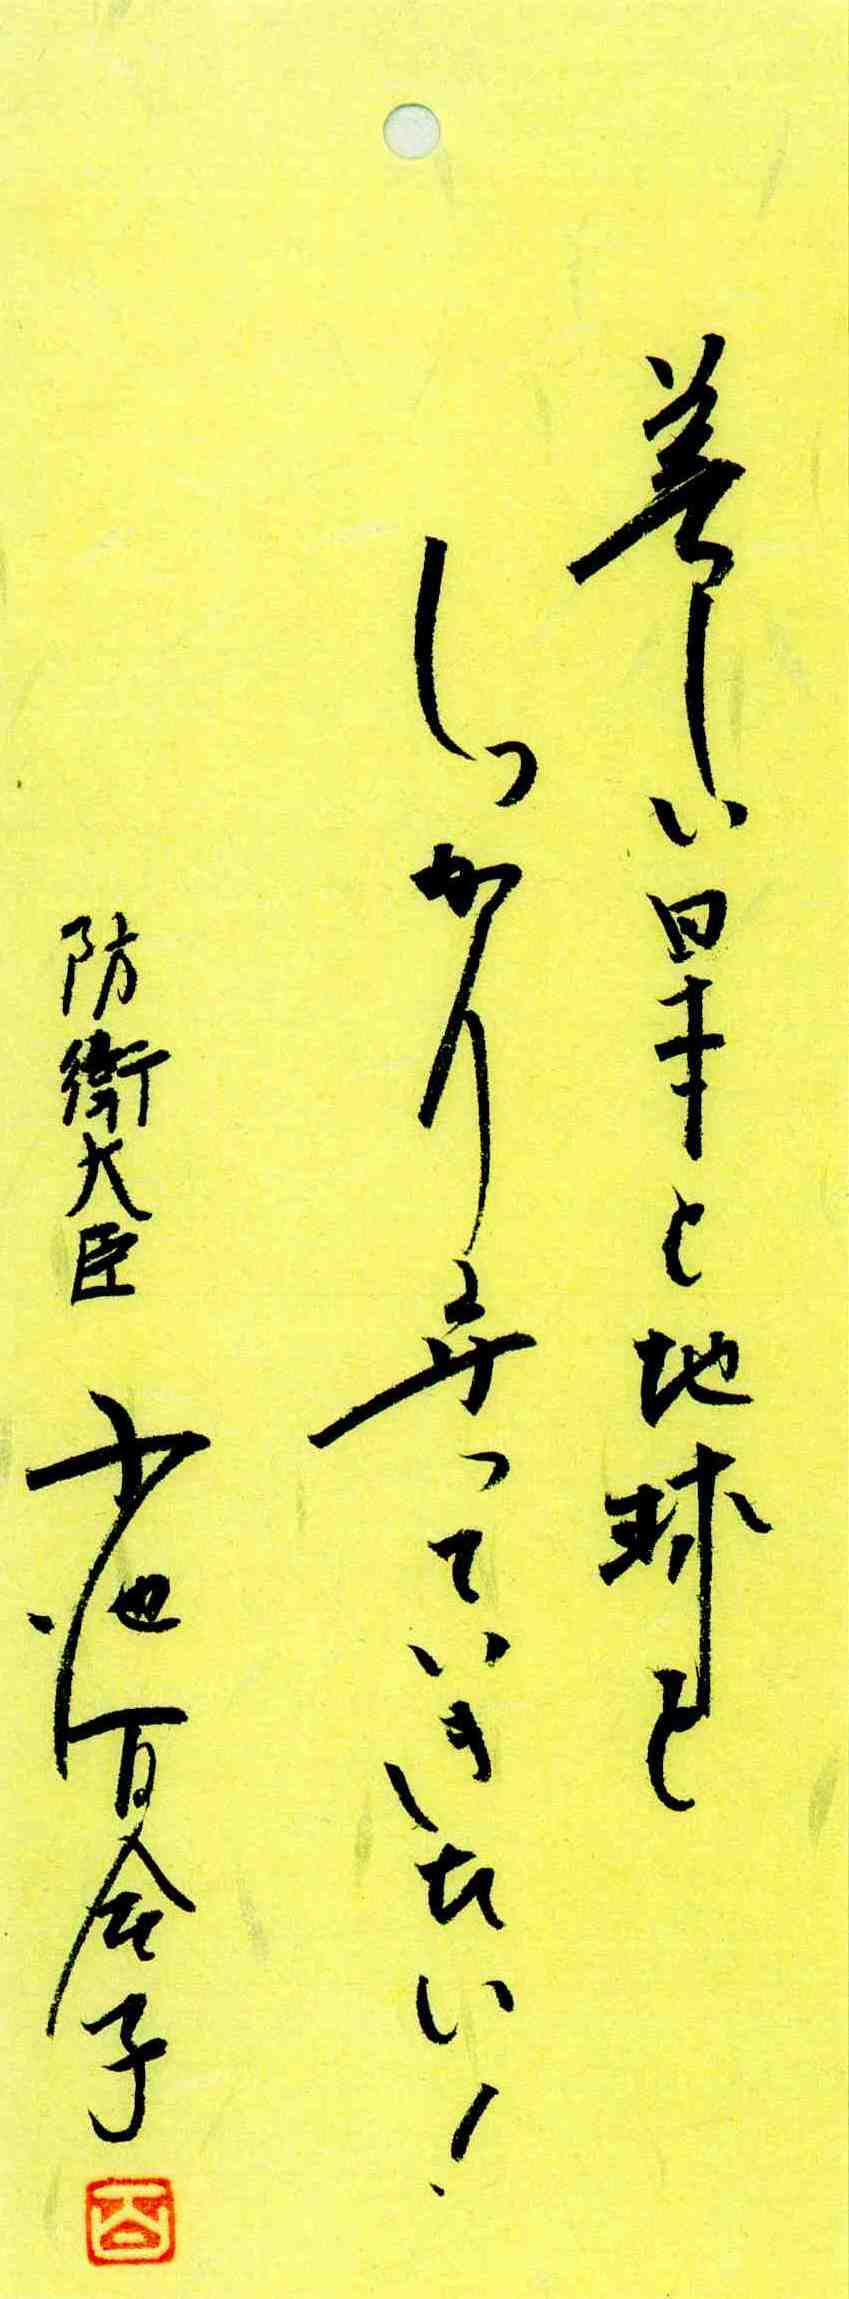 美しい日本と地球と
しっかり守っていきたい!
防衛大臣 小池百合子
百